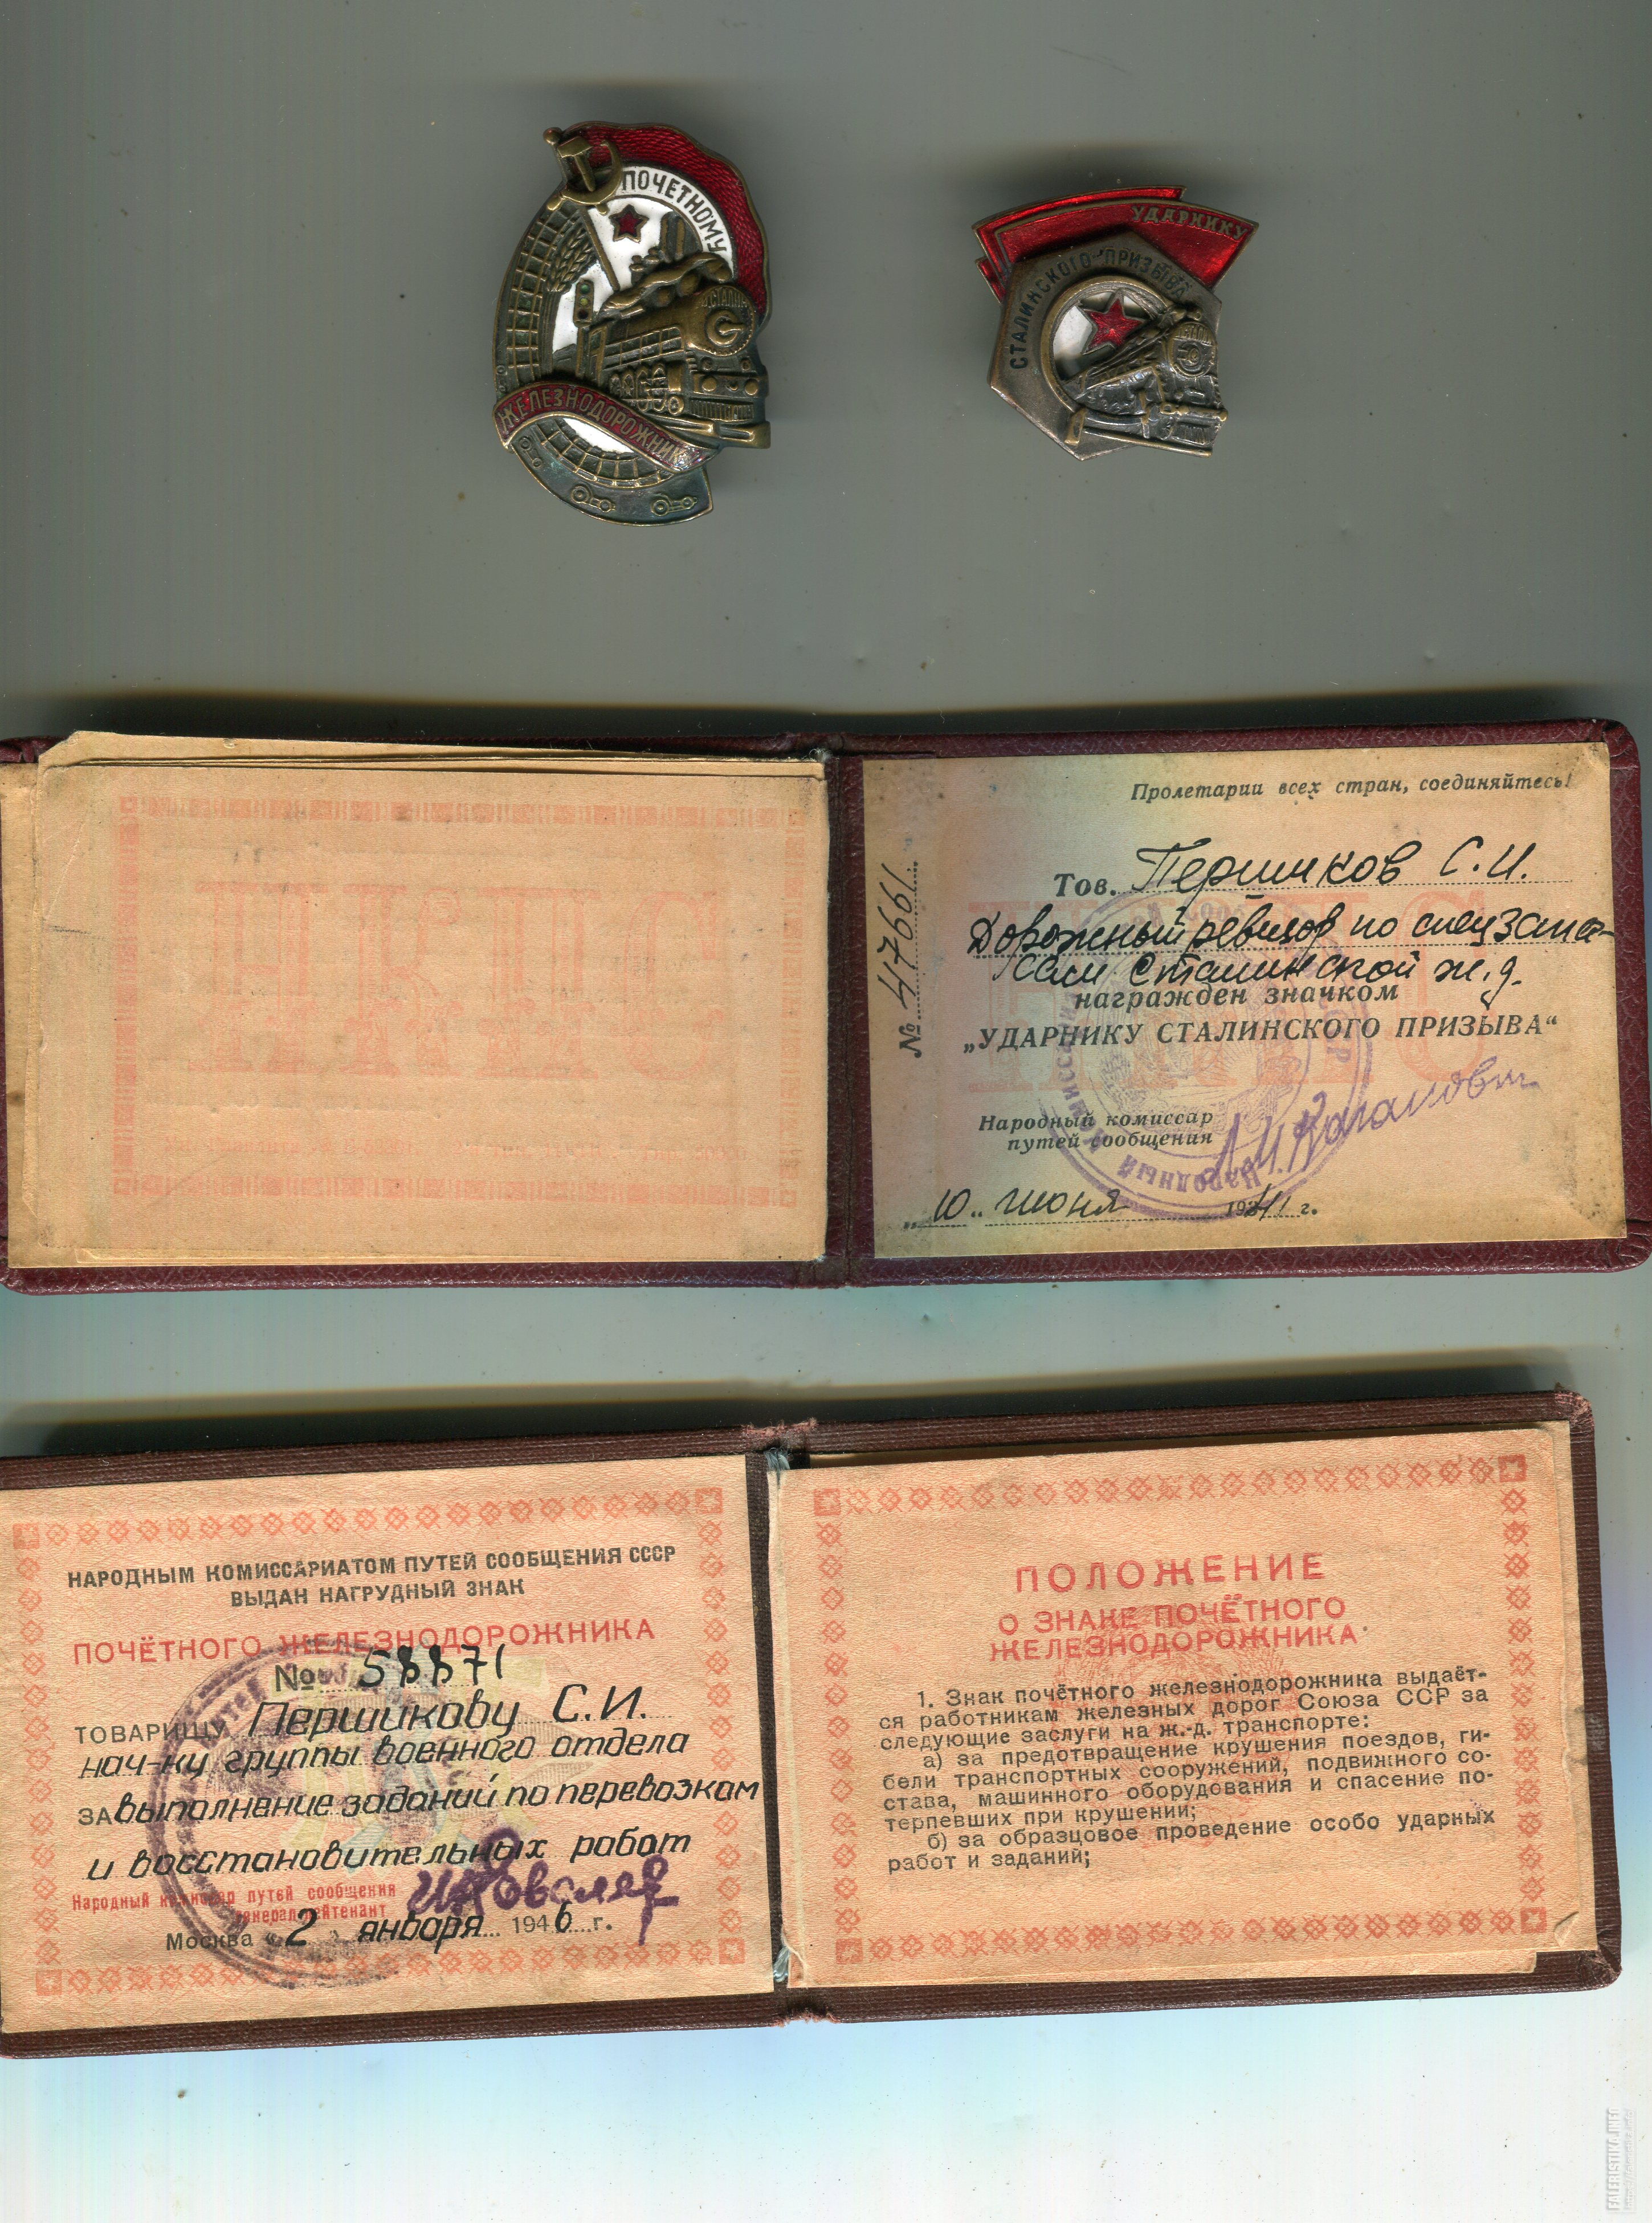 ПОЧЕТНОМУ
ЖЕЛЕЗНОДОРОЖНИК
УДАРНИКУ
СТАЛИНСКОГО ПРИЗЫВА
Пролетарии всех стран, соединяйтесь!
№ 47661
Тов. Першиков С.И.
Дорожный ревизор по спецзапа-
сам Сталинской ж.д.
награжден значком
„УДАРНИКУ СТАЛИНСКОГО ПРИЗЫВА“
Народный комиссар
путей сообщения
Л.М.Каганович
„10„ июня 1941 г.
НАРОДНЫМ КОМИССАРИАТОМ ПУТЕЙ СООБЩЕНИЯ СССР
ВЫДАН НАГРУДНЫЙ ЗНАК
ПОЧЁТНОГО ЖЕЛЕЗНОДОРОЖНИКА
№ 58871
ТОВАРИЩУ Першикову С.И.
нач-ку группы военного отдела
ЗА выполнение заданий по перевозкам
и восстановительных работ
Народный комиссар путей сообщения
генерал-лейтенант
И.Ковалев
Москва «2» января 1946 г.
ПОЛОЖЕНИЕ
О ЗНАКЕ ПОЧЁТНОГО
ЖЕЛЕЗНОДОРОЖНИКА
1. Знак почётного железнодорожника выдаёт-
ся работникам железных дорог Союза ССР за
следующие заслуги на ж.-д. транспорте:
а) за предотвращение крушения поездов, ги-
бели транспортных сооружений, подвижного со-
става, машинного оборудования и спасение по-
терпевших при крушении;
б) за образцовое проведение особо ударных
работ и заданий;
FALERISTIKA.INFO